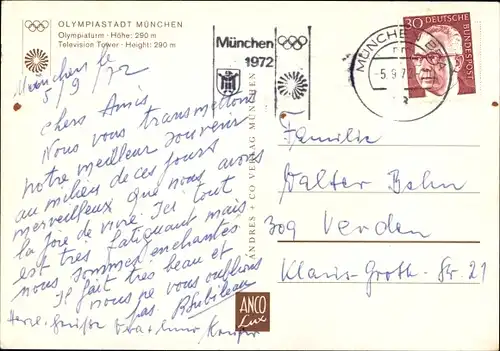 OLYMPIASTADT MÜNCHEN
Olympiaturm · Höhe: 290 m
Television Tower · Height: 290 m
München le
5/9/72
Chers Amis,
Nous vous transmettons
notre meilleur souvenir
au milieu de ces jours
merveilleux que nous avons
la joie de vivre. Ici tout
est très fatiguant mais
nous sommes enchantés
Il fait très beau et
nous ne vous oublions
pas.
Herzl. Grüße
München
1972
MÜNCHEN
-5.9.72
30
DEUTSCHE BUNDESPOST
ANDRES + CO VERLAG MÜNCHEN
ANCO
Lux
Familie
Walter Bohn
309 Verden
Klaus-Groth-Str. 21